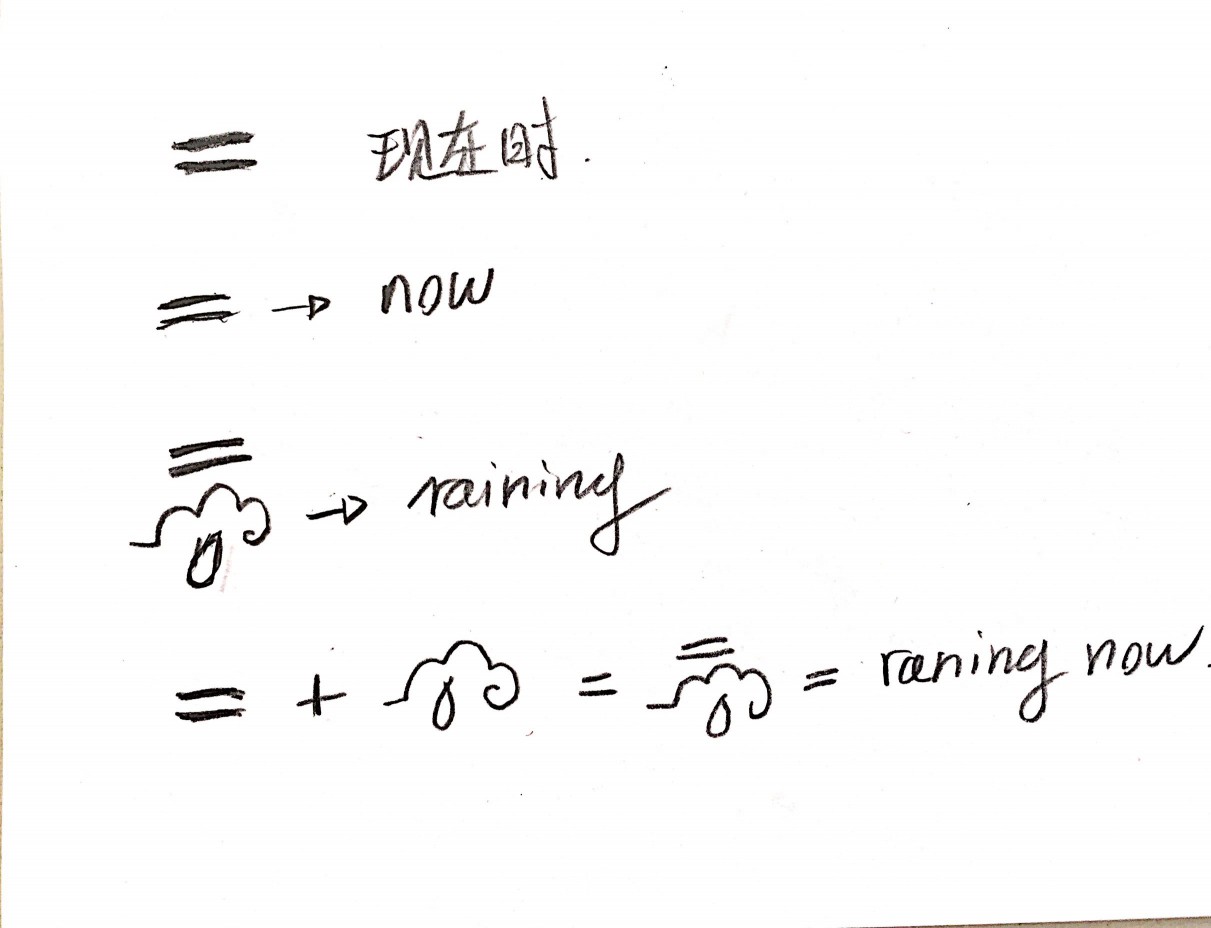 = 现在时.
= → now
→ raining
= + = = raning now.